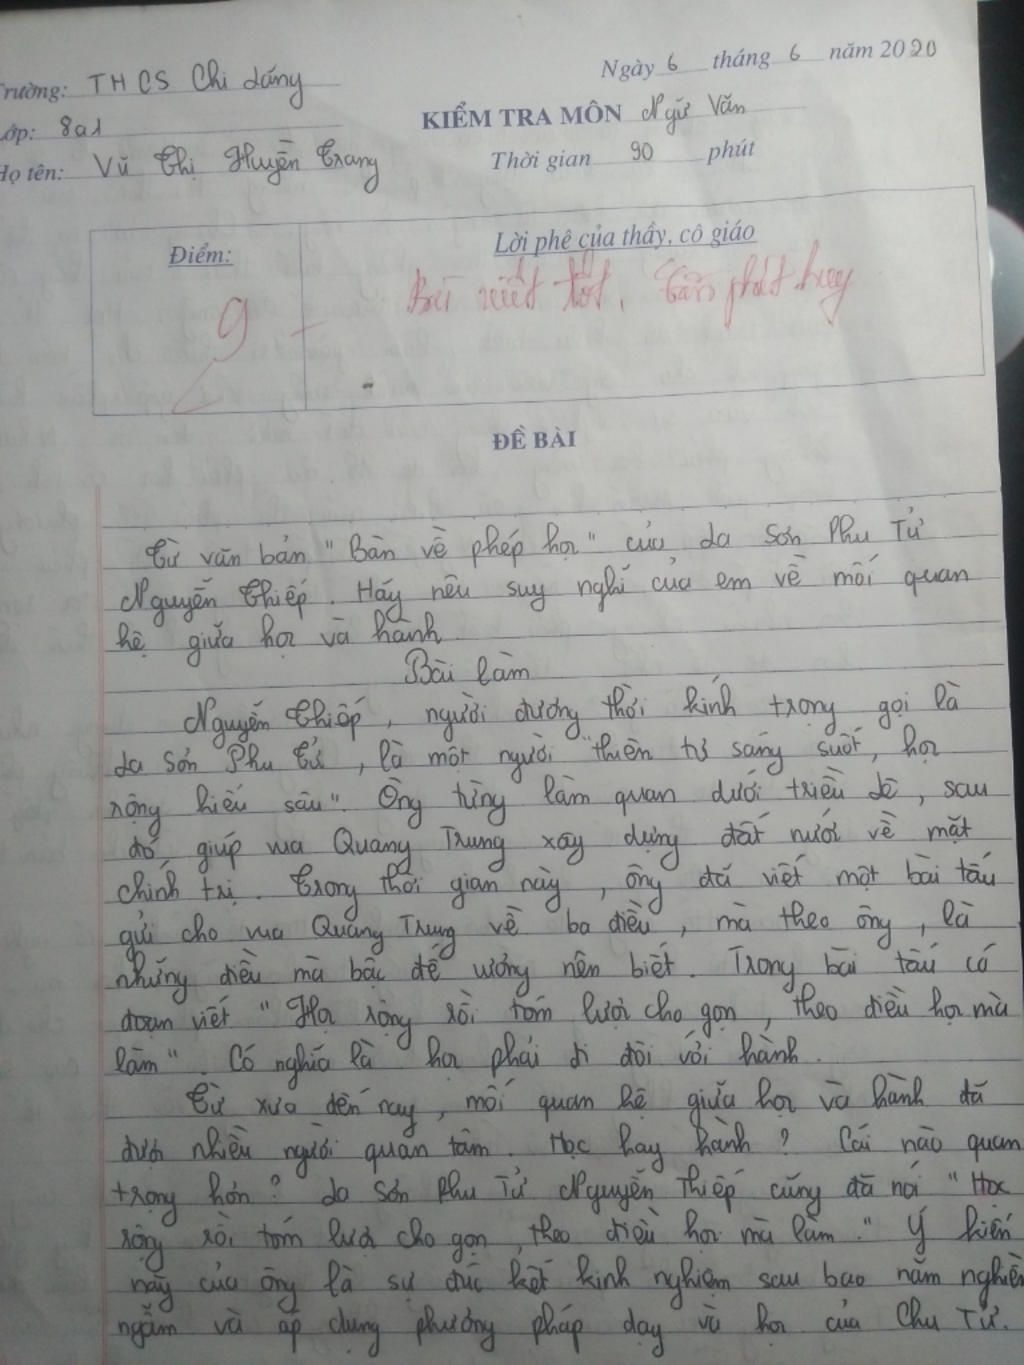 Trường: THCS Chi Lăng
Ngày 6 tháng 6 năm 2020
Lớp: 8a1
KIỂM TRA MÔN Ngữ Văn
Họ tên: Vũ Thị Huyền Trang
Thời gian 90 phút
Điểm:
Lời phê của thầy, cô giáo
9
Bài viết tốt, cần phát huy
ĐỀ BÀI
Từ văn bản "Bàn về phép học" của La Sơn Phu Tử
Nguyễn Thiếp. Hãy nêu suy nghĩ của em về mối quan
hệ giữa học và hành.
Bài làm
Nguyễn Thiếp, người đương thời kính trọng gọi là
La Sơn Phu Tử, là một người "thiên tư sáng suốt, học
rộng hiểu sâu". Ông từng làm quan dưới triều Lê, sau
đó giúp vua Quang Trung xây dựng đất nước về mặt
chính trị. Trong thời gian này, ông đã viết một bài tấu
gửi cho vua Quang Trung về ba điều, mà theo ông, là
những điều mà bậc đế vương nên biết. Trong bài tấu có
đoạn viết "Học rộng rồi tóm lược cho gọn, theo điều học mà
làm". Có nghĩa là học phải đi đôi với hành.
Từ xưa đến nay, mối quan hệ giữa học và hành đã
được nhiều người quan tâm. Học hay hành? Cái nào quan
trọng hơn? La Sơn Phu Tử Nguyễn Thiếp cũng đã nói "Học
rộng rồi tóm lược cho gọn, theo điều học mà làm." Ý kiến
này của ông là sự đúc kết kinh nghiệm sau bao năm nghiền
ngẫm và áp dụng phương pháp dạy và học của Chu Tử.